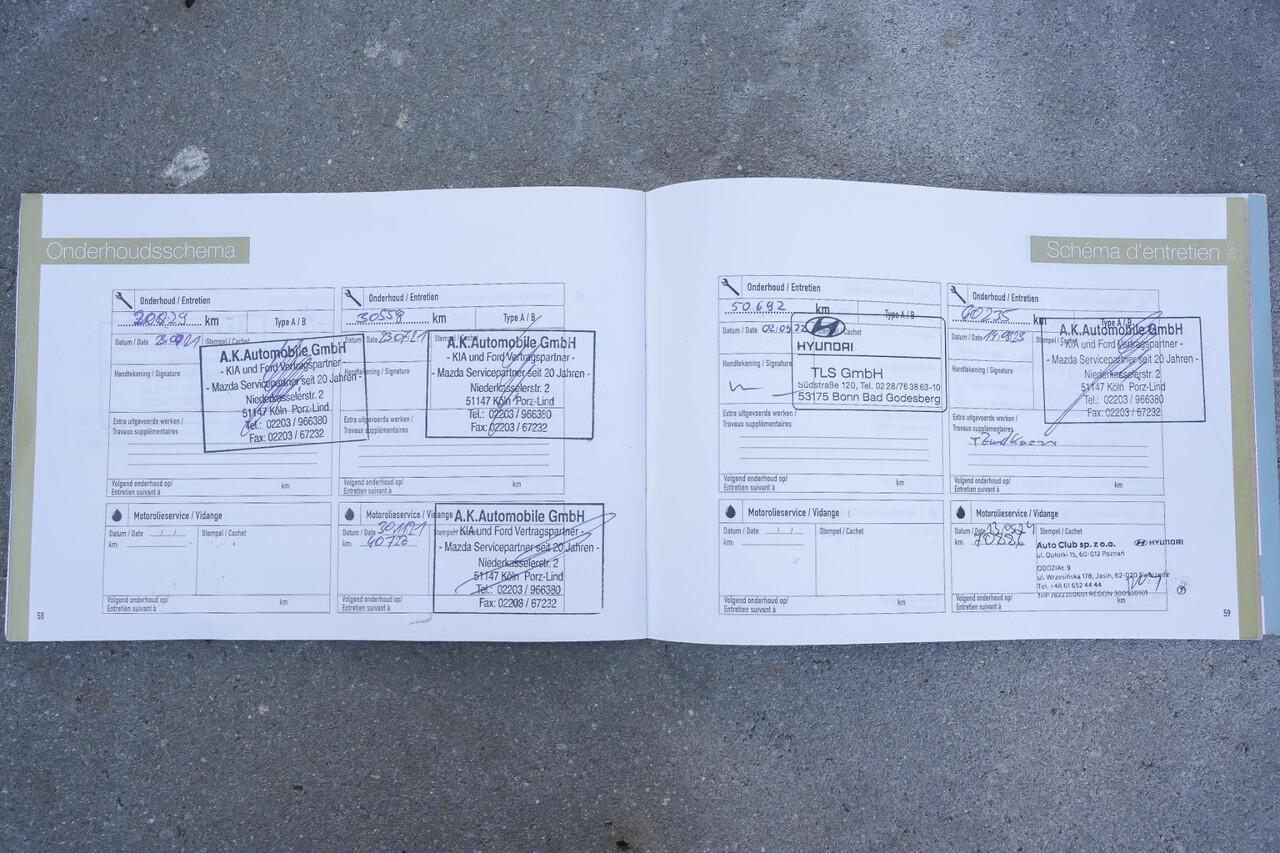 Onderhoudsschema
Onderhoud / Entretien
km
Type A / B
Datum / Date
Stempel / Cachet
Handtekening / Signature
A.K.Automobile GmbH
- KIA und Ford Vertragspartner -
- Mazda Servicepartner seit 20 Jahren -
Niederkasselerstr. 2
51147 Köln Porz-Lind
Tel.: 02203 / 966380
Fax: 02203 / 67232
Extra uitgevoerde werken /
Travaux supplémentaires
Volgend onderhoud op/
Entretien suivant à
km
Onderhoud / Entretien
30559 km
Type A / B
Datum / Date 230721
Handtekening / Signature
A.K.Automobile GmbH
- KIA und Ford Vertragspartner -
- Mazda Servicepartner seit 20 Jahren -
Niederkasselerstr. 2
51147 Köln Porz-Lind
Tel.: 02203 / 966380
Fax: 02203 / 67232
Extra uitgevoerde werken /
Travaux supplémentaires
Volgend onderhoud op/
Entretien suivant à
km
Motorolieservice / Vidange
Datum / Date
Stempel / Cachet
km:
Volgend onderhoud op/
Entretien suivant à
km
Motorolieservice / Vidange
Datum / Date 301121
km:
A.K.Automobile GmbH
- KIA und Ford Vertragspartner -
- Mazda Servicepartner seit 20 Jahren -
Niederkasselerstr. 2
51147 Köln Porz-Lind
Tel.: 02203 / 966380
Fax: 02203 / 67232
Volgend onderhoud op/
Entretien suivant à
58
Schéma d'entretien
Onderhoud / Entretien
50.692 km
Type A / B
Datum / Date 02.09.22
Cachet
Handtekening / Signature
HYUNDAI
TLS GmbH
Südstraße 120, Tel. 02 28/76 3863-10
53175 Bonn Bad Godesberg
Extra uitgevoerde werken /
Travaux supplémentaires
Volgend onderhoud op/
Entretien suivant à
km
Onderhoud / Entretien
60235 km
Type A / B
Datum / Date
Handtekening / Signature
A.K.Automobile GmbH
- KIA und Ford Vertragspartner -
- Mazda Servicepartner seit 20 Jahren -
Niederkasselerstr. 2
51147 Köln Porz-Lind
Tel.: 02203 / 966380
Fax: 02203 / 67232
Extra uitgevoerde werken /
Travaux supplémentaires
Volgend onderhoud op/
Entretien suivant à
km
Motorolieservice / Vidange
Datum / Date
Stempel / Cachet
km:
Volgend onderhoud op/
Entretien suivant à
km
Motorolieservice / Vidange
Datum / Date 13.05.24
Stempel / Cachet
km:
Auto Club sp. z o.o.
HYUNDAI
ul. Opłotki 15, 60-012 Poznań
ODDZIAŁ 9
ul. Wrzesińska 178, Jasin, 62-020
Tel. +48 61 652 44 44
Volgend onderhoud op/
Entretien suivant à
km
59